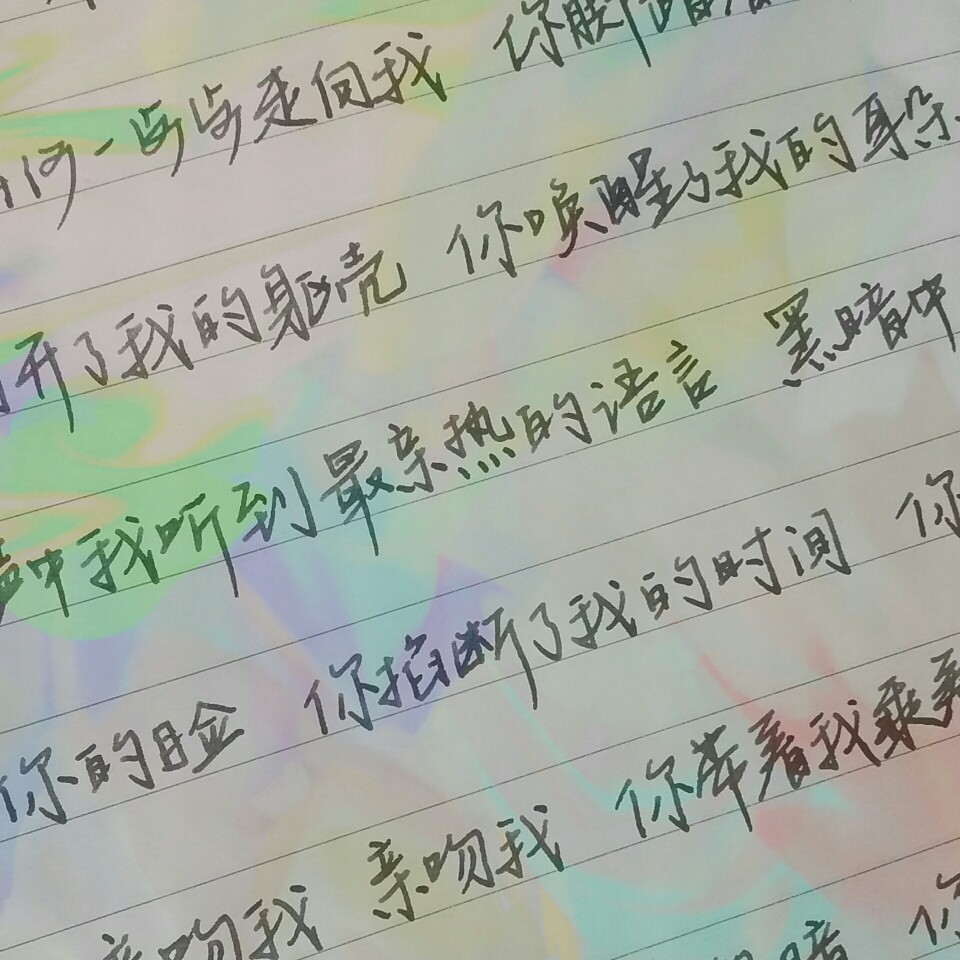 何一步步走向我 你脚踏着
开了我的躯壳 你唤醒了我的耳朵
中我听到最亲热的语言 黑暗中
你的脸 你掐断了我的时间 你
亲吻我 亲吻我 你牵着我乘着
暗 你